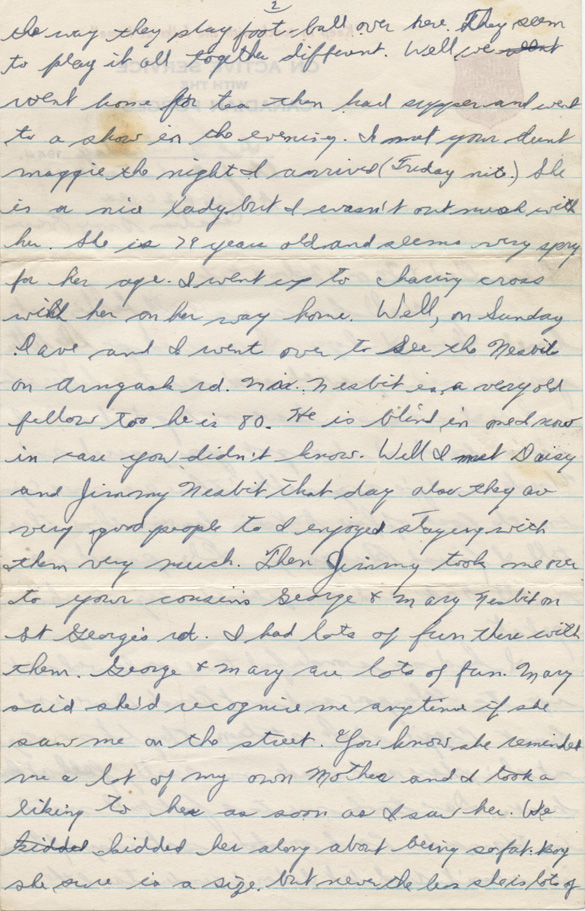 2
the way they play foot-ball over here. They seem
to play it all together different. Well, we went
went home for tea then had supper and went
to a show in the evening. I met your Aunt
maggie the night I arrived (Friday nite.) She
is a nice lady but I wasn't out much with
her. She is 79 years old and seems very spry
for her age. I went up to Charing cross
with her on her way home. Well, on Sunday
Dave and I went over to see the Nesbit
on Arngask rd. Mr. Nesbit is a very old
fellow too he is 80. He is blind in one now
in case you didn't know. Well I met Daisy
and Jimmy Nesbit that day also they are
very good people to I enjoyed staying with
them very much. Then Jimmy took me over
to your cousins George & Mary Nesbit on
St George's rd. I had lots of fun there with
them. George & Mary are lots of fun. Mary
said she'd recognize me anytime if she
saw me on the street. You know she reminded
me a lot of my own Mother and I took a
liking to her as soon as I saw her. We
kidded kidded her along about being so fat. Boy
she sure is a size. but never the less she is lots of
ON ACTIVE SERVICE
WITH THE
CANADIAN